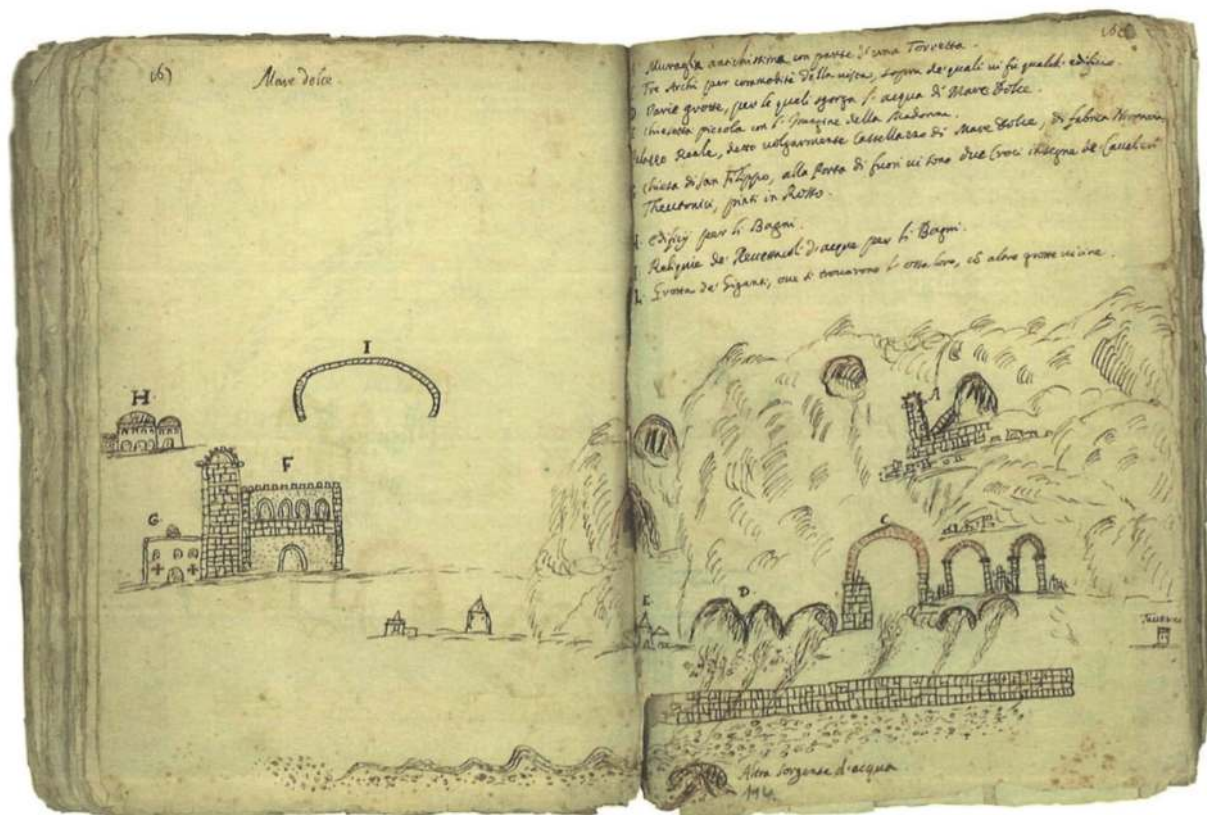 167
Mare dolce.
168
Muraglia antichissima con parte d'una Torretta.
Tre Archi per commodità della vista, sopra de quali vi fù qualche edificio.
D Varie grotte, per le quali sgorga l'acqua di Mare Dolce.
E Chiesetta piccola con l'Imagine della Madonna.
Palazzo Reale, detto volgarmente Castellazzo di Mare Dolce, di fabrica
Chiesa di San Filippo, alla Porta di fuori vi sono due Croci insegne de Cavalieri
Theutonici, pinti in Rosso.
H. Edificij per li Bagni.
I. Reliquie de Recettacoli d'acque per li Bagni.
L. Grotta de Giganti, ove si trovarono l'ossa loro, cõ altre grotte vicine.
I
H
F
G
A
C
D
E
Altra sorgente d'acqua